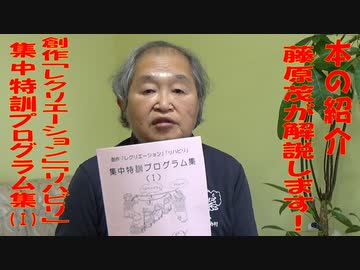 本の紹介
藤原茂が解説します!
創作「レクリエーション」「リハビリ」
集中特訓プログラム集(I)
創作「レクリエーション」「リハビリ」
集中特訓プログラム集
(I)